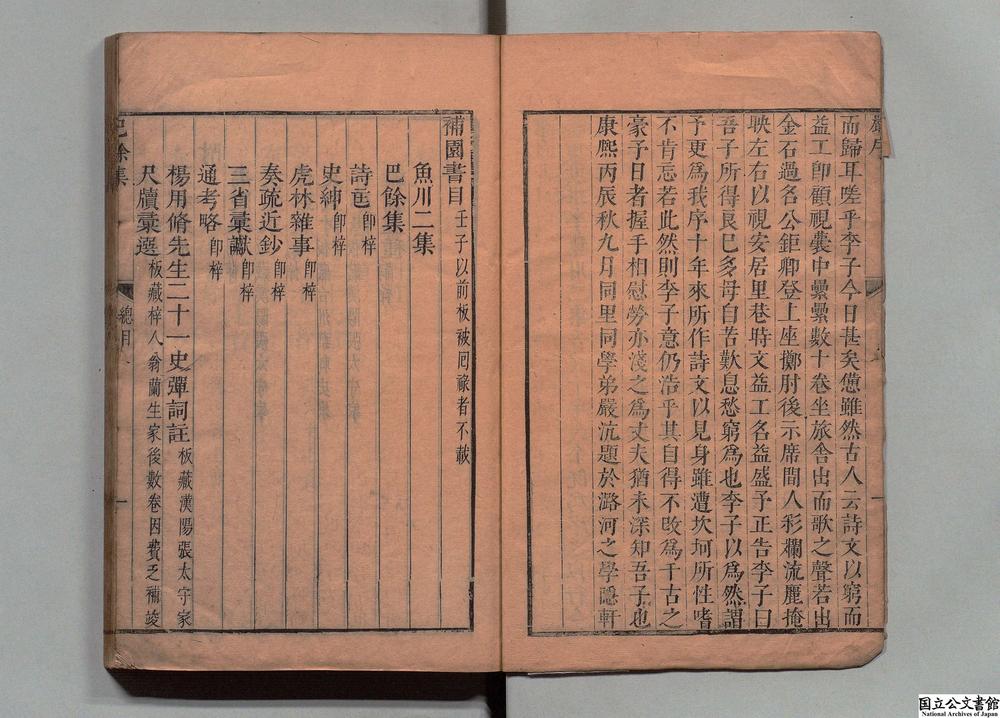 而歸耳嗟乎李子今日甚矣憊雖然古人云詩文以窮而
益工卽顧視囊中纍纍數十卷坐旅舍出而歌之聲若出
金石過名公鉅卿登上座擲肘後示席間人彩爛流麗掩
映左右以視安居里巷時文益工名益盛予正告李子曰
吾子所得良已多毋自苦歎息愁窮爲也李子以爲然謂
予更爲我序十年來所作詩文以見身雖遭坎坷所性嗜
不肯忘若此然則李子意仍浩乎其自得不敢爲千古之
豪予日者握手相慰勞亦淺之爲丈夫猶未深知吾子也
康熙丙辰秋九月同里同學弟嚴沆題於潞河之學隱軒
補園書目 壬子以前板被囘祿者不載
魚川二集
巴餘集
詩苞 卽梓
史紳 卽梓
虎林雜事 卽梓
奏疏近鈔 卽梓
三省彙讞 卽梓
通考略 卽梓
楊用脩先生二十一史彈詞註 板藏漢陽張太守家
尺牘彙選 板藏梓人翁蘭生家後數卷因費乏補竣
巴餘集
總目
一
国立公文書館
National Archives of Japan